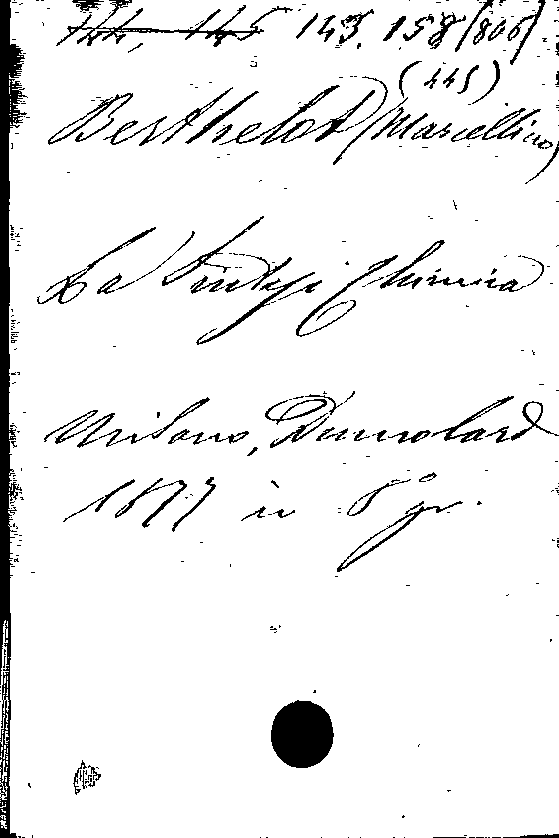 143. 158 (806)
(445)
Berthelot (Marcellino)
La Sintesi Chimica
Milano, Dumolard
1877 in 8° gr.